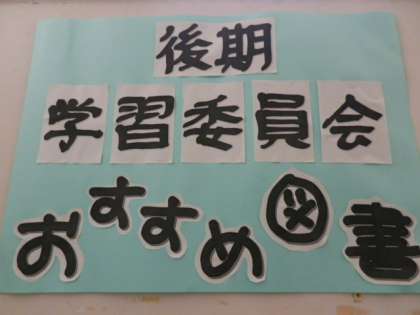 後期
学習委員会
おすすめ図書